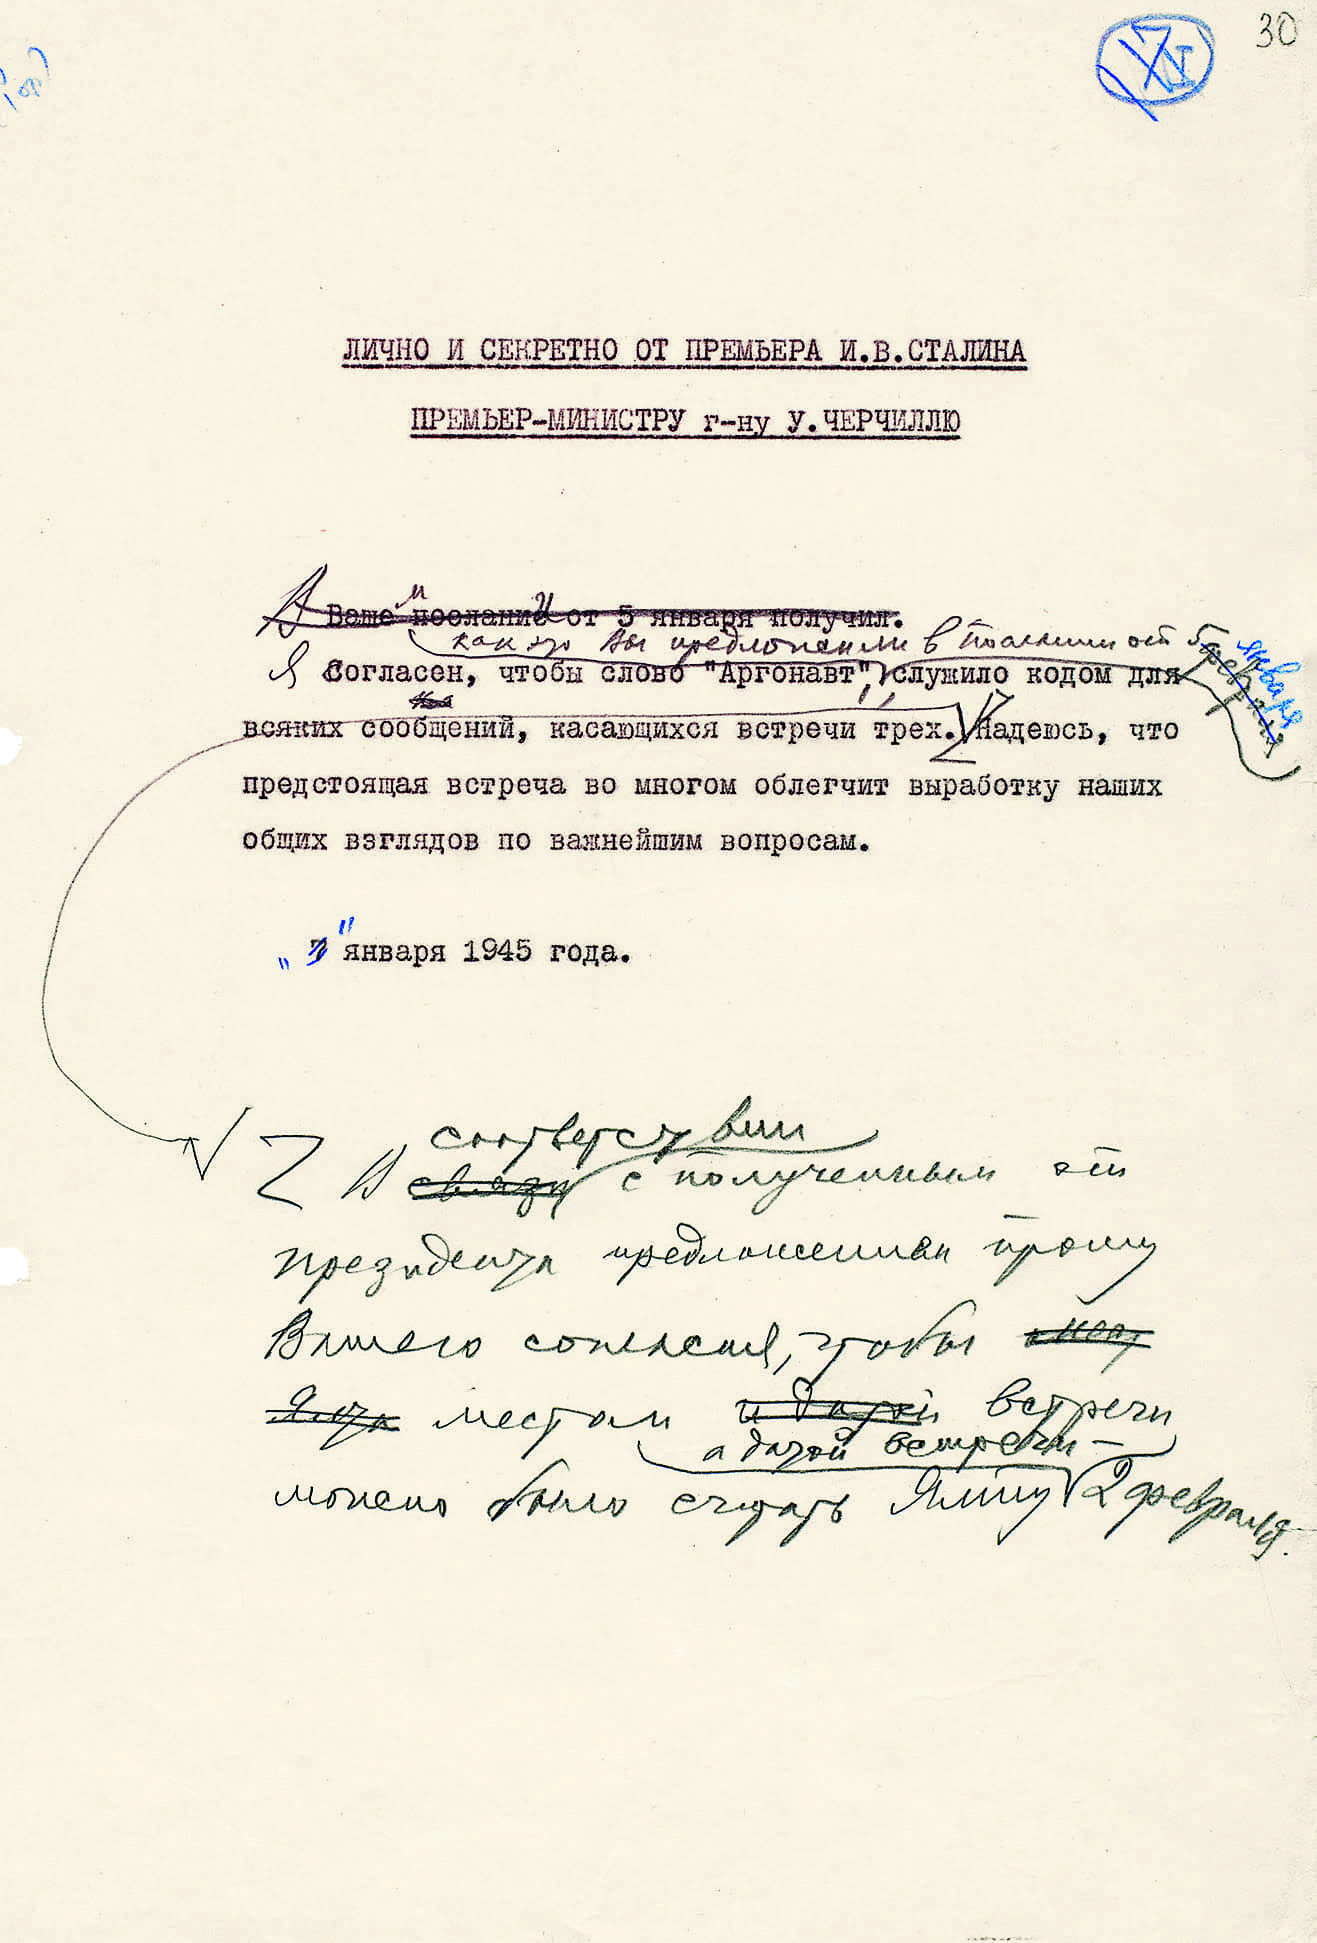 30
ЛИЧНО И СЕКРЕТНО ОТ ПРЕМЬЕРА И.В.СТАЛИНА
ПРЕМЬЕР-МИНИСТРУ г-ну У.ЧЕРЧИЛЛЮ
В Ваше м послании от 5 января получил.
как это Вы предложили в послании от 5 февраля января
Я Согласен, чтобы слово "Аргонавт", служило кодом для
всяких сообщений, касающихся встречи трех. Надеюсь, что
предстоящая встреча во многом облегчит выработку наших
общих взглядов по важнейшим вопросам.
"7" января 1945 года.
соответствии
В связи с полученным от
президента предложением прошу
Вашего согласия, чтобы
местом и датой встречи
а датой встречи —
можно было считать Ялту 2 февраля.